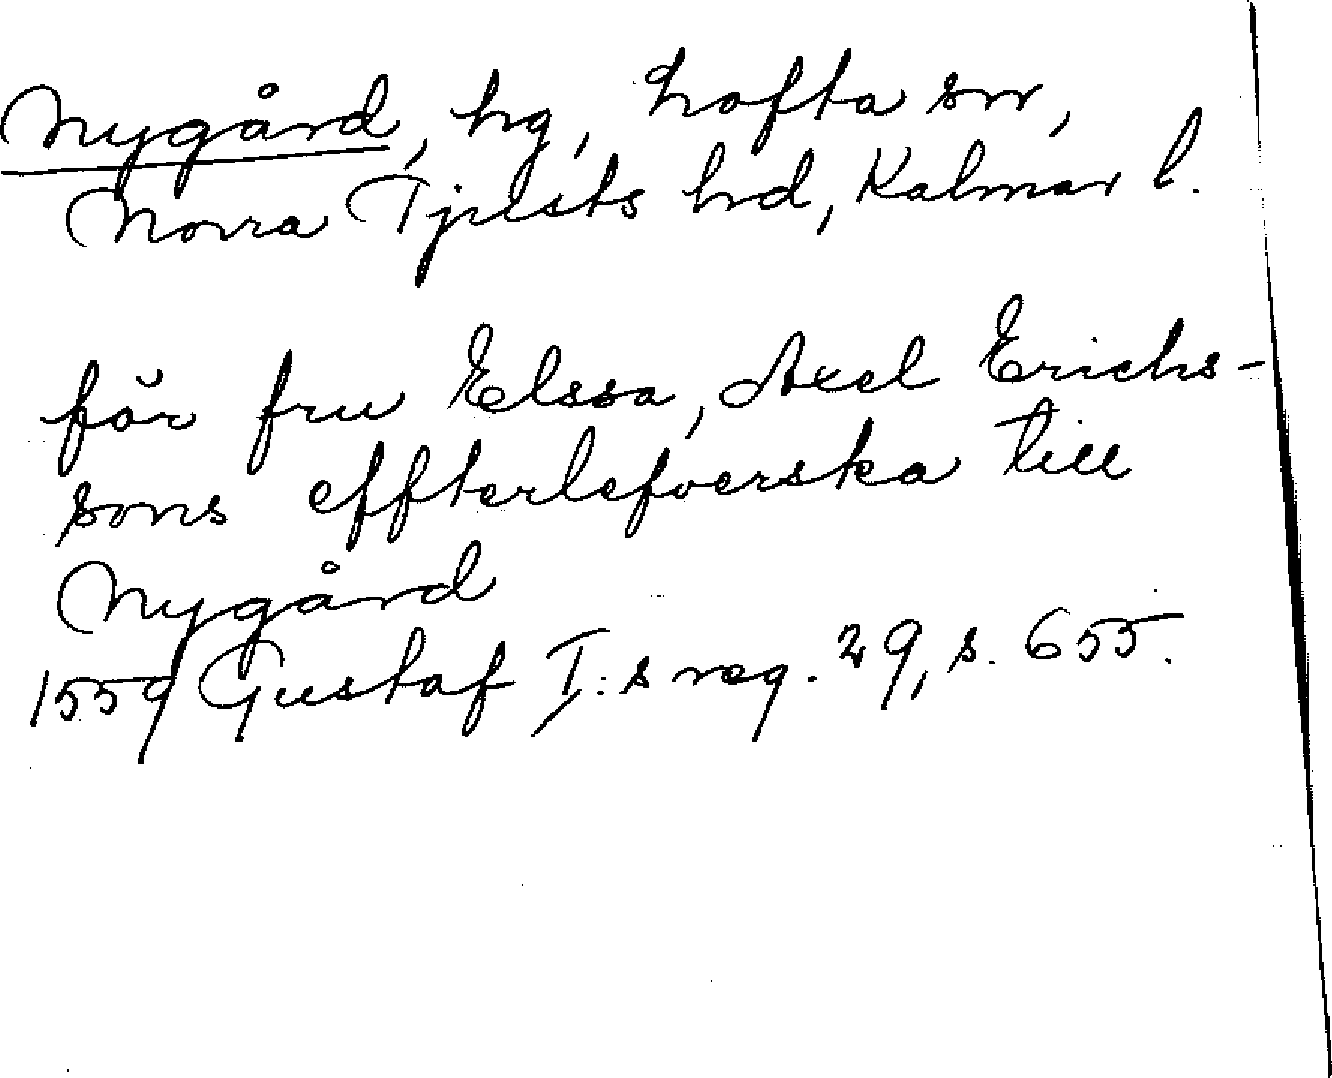 Nygård, hg, Lofta sn,
Norra Tjusts hrd, Kalmar l.
för fru Elssa, Axel Erichs-
sons effterlefverska till
Nygård
1559 Gustaf I:s reg. 29, s. 655.